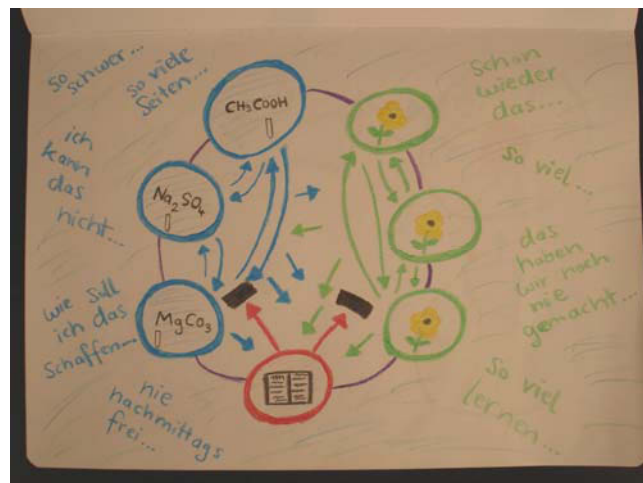 so schwer...
so viele
Seiten...
ich
kann
das
nicht...
wie soll
ich das
schaffen...
nie
nachmittags
frei...
CH₃COOH
Na₂SO₄
MgCo₃
Schon
wieder
das...
so viel...
das
haben
wir noch
nie
gemacht...
so viel
lernen...